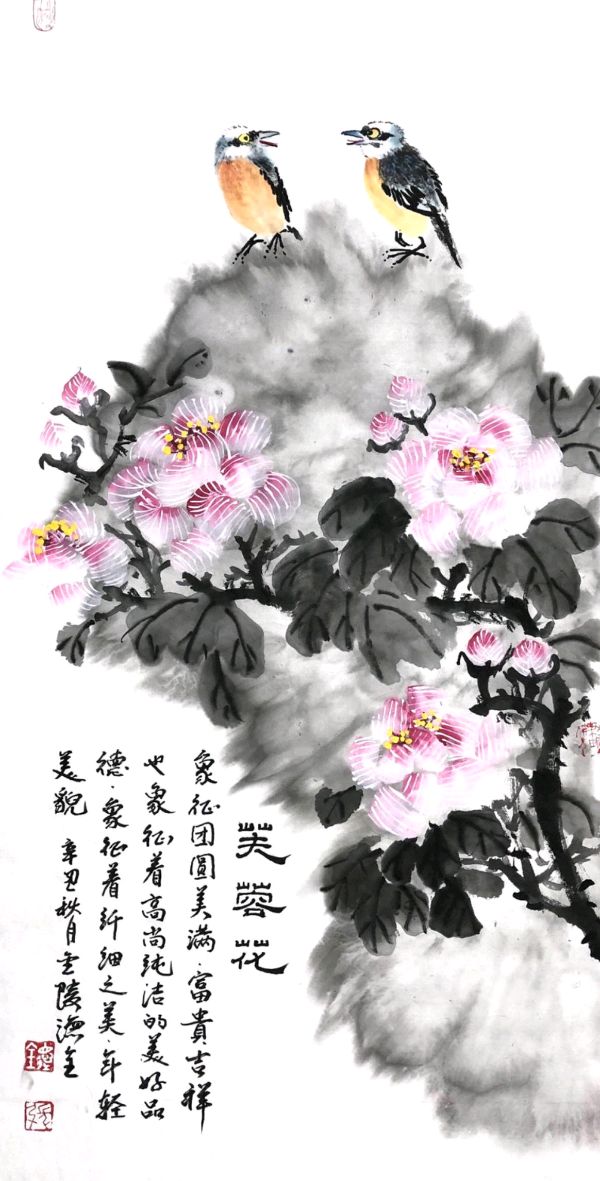 芙蓉花
象征团圆美满·富貴吉祥
也象征着高尚纯洁的美好品
德·象征着纤细之美·年轻
美貌 辛丑秋月金陵